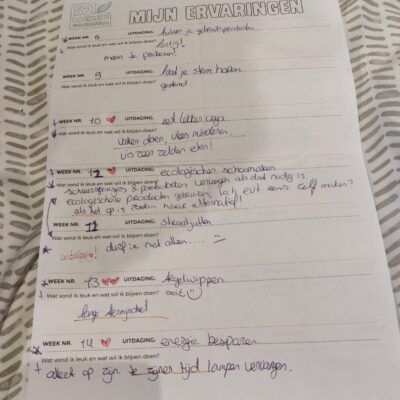 52 WEKEN
MIJN ERVARINGEN
WEEK NR. 8 UITDAGING:
Wat vond ik leuk en wat wil ik blijven doen? lastig!
maar te proberen!
WEEK NR. 9 UITDAGING: laat je stem horen
Wat vond ik leuk en wat wil ik blijven doen?
gestemd
WEEK NR. 10 UITDAGING: eet lekker vega
Wat vond ik leuk en wat wil ik blijven doen?
vaker doen, vlees minderen
vis zeer zelden eten!
WEEK NR. 12 UITDAGING: ecologischer schoonmaken
Wat vond ik leuk en wat wil ik blijven doen?
schuursponsjes & poetsdoeken vervangen als dat nodig is
ecologische producten gebruiken, toch evt eens zelf maken?
als het op is zoeken naar alternatief!
WEEK NR. 11 UITDAGING: straatjutter
Wat vond ik leuk en wat wil ik blijven doen?
! durf ik niet alleen....
WEEK NR. 13 UITDAGING: tegelwippen
Wat vond ik leuk en wat wil ik blijven doen? ooit
lange termijndoel
WEEK NR. 14 UITDAGING: energie besparen
Wat vond ik leuk en wat wil ik blijven doen?
+ alleen op zijn te zijner tijd lampen vervangen.